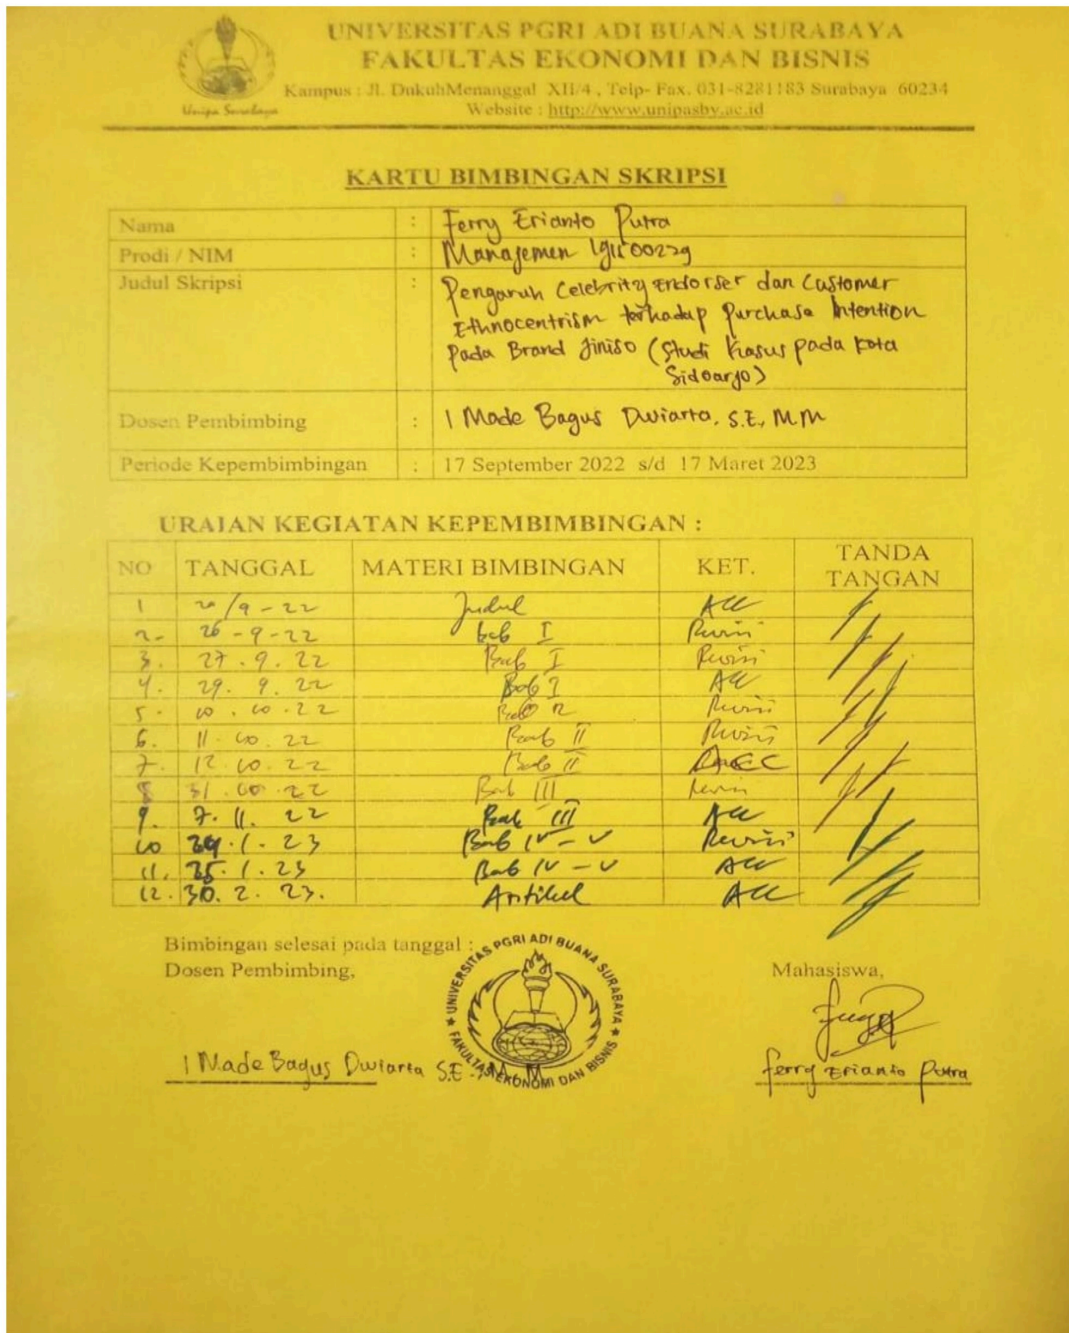 UNIVERSITAS PGRI ADI BUANA SURABAYA
FAKULTAS EKONOMI DAN BISNIS
Kampus : Jl. DukuhMenanggal XII/4 , Telp- Fax. 031-8281183 Surabaya 60234
Website : http://www.unipasby.ac.id
Unipa Surabaya
KARTU BIMBINGAN SKRIPSI
Nama : Ferry Erianto Putra
Prodi / NIM : Manajemen
Judul Skripsi : Pengaruh Celebrity Endorser dan Customer
Ethnocentrism terhadap Purchase Intention
Pada Brand Jiniso (Studi Kasus pada Kota
Sidoarjo)
Dosen Pembimbing : I Made Bagus Dwiarta, S.E, M.M
Periode Kepembimbingan : 17 September 2022 s/d 17 Maret 2023
URAIAN KEGIATAN KEPEMBIMBINGAN :
NO TANGGAL MATERI BIMBINGAN KET. TANDA TANGAN
1 /9-22 Judul ACC
2- 26-9-22 bab I Revisi
3. 27.9.22 Bab I Revisi
4. 29. 9. 22 Bab I ACC
5. 10.10.22 Bab Revisi
6. 11.10.22 Bab II Revisi
7. 12.10.22 Bab II ACC
8 31.10.22 Bab III Revisi
9. 7.11.22 Bab III ACC
10 .1.23 Bab IV - V Revisi
11. 25.1.23 Bab IV - V ACC
12. 30.2.23. Artikel ACC
Bimbingan selesai pada tanggal :
Dosen Pembimbing, Mahasiswa,
UNIVERSITAS PGRI ADI BUANA SURABAYA
FAKULTAS EKONOMI DAN BISNIS
I Made Bagus Dwiarta S.E., M.M
Ferry Erianto Putra